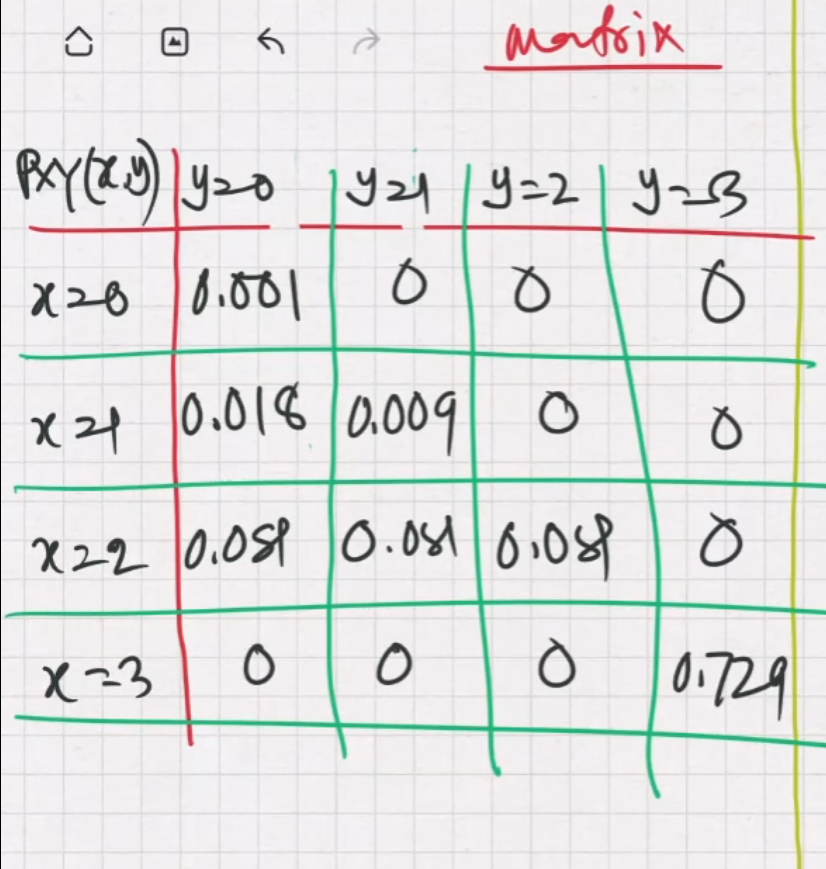 matrix
PXY(x,y) y=0 y=1 y=2 y=3
x=0 0.001 0 0 0
x=1 0.018 0.009 0 0
x=2 0.081 0.081 0.081 0
x=3 0 0 0 0.729